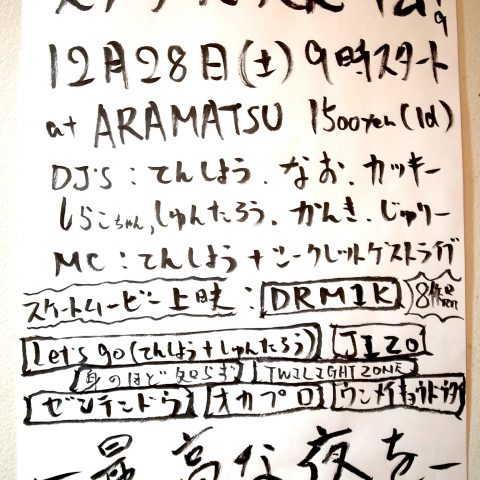 12月28日(土) 9時スタート
at ARAMATSU 1500yen(1d)
DJ's : てんしょう. なお. カッキー
しらこちゃん, しゅんたろう. かんき. じゅりー
MC : てんしょう + シークレットゲストライブ
スケートムービー上映 : DRMIK 8作品
Let's go (てんしょう+しゅんたろう) JIZO
身のほど知らず TWILIGHT ZONE
ゼンテンドウ オカプロ ウンメイキョウドウタイ
ー最高な夜をー